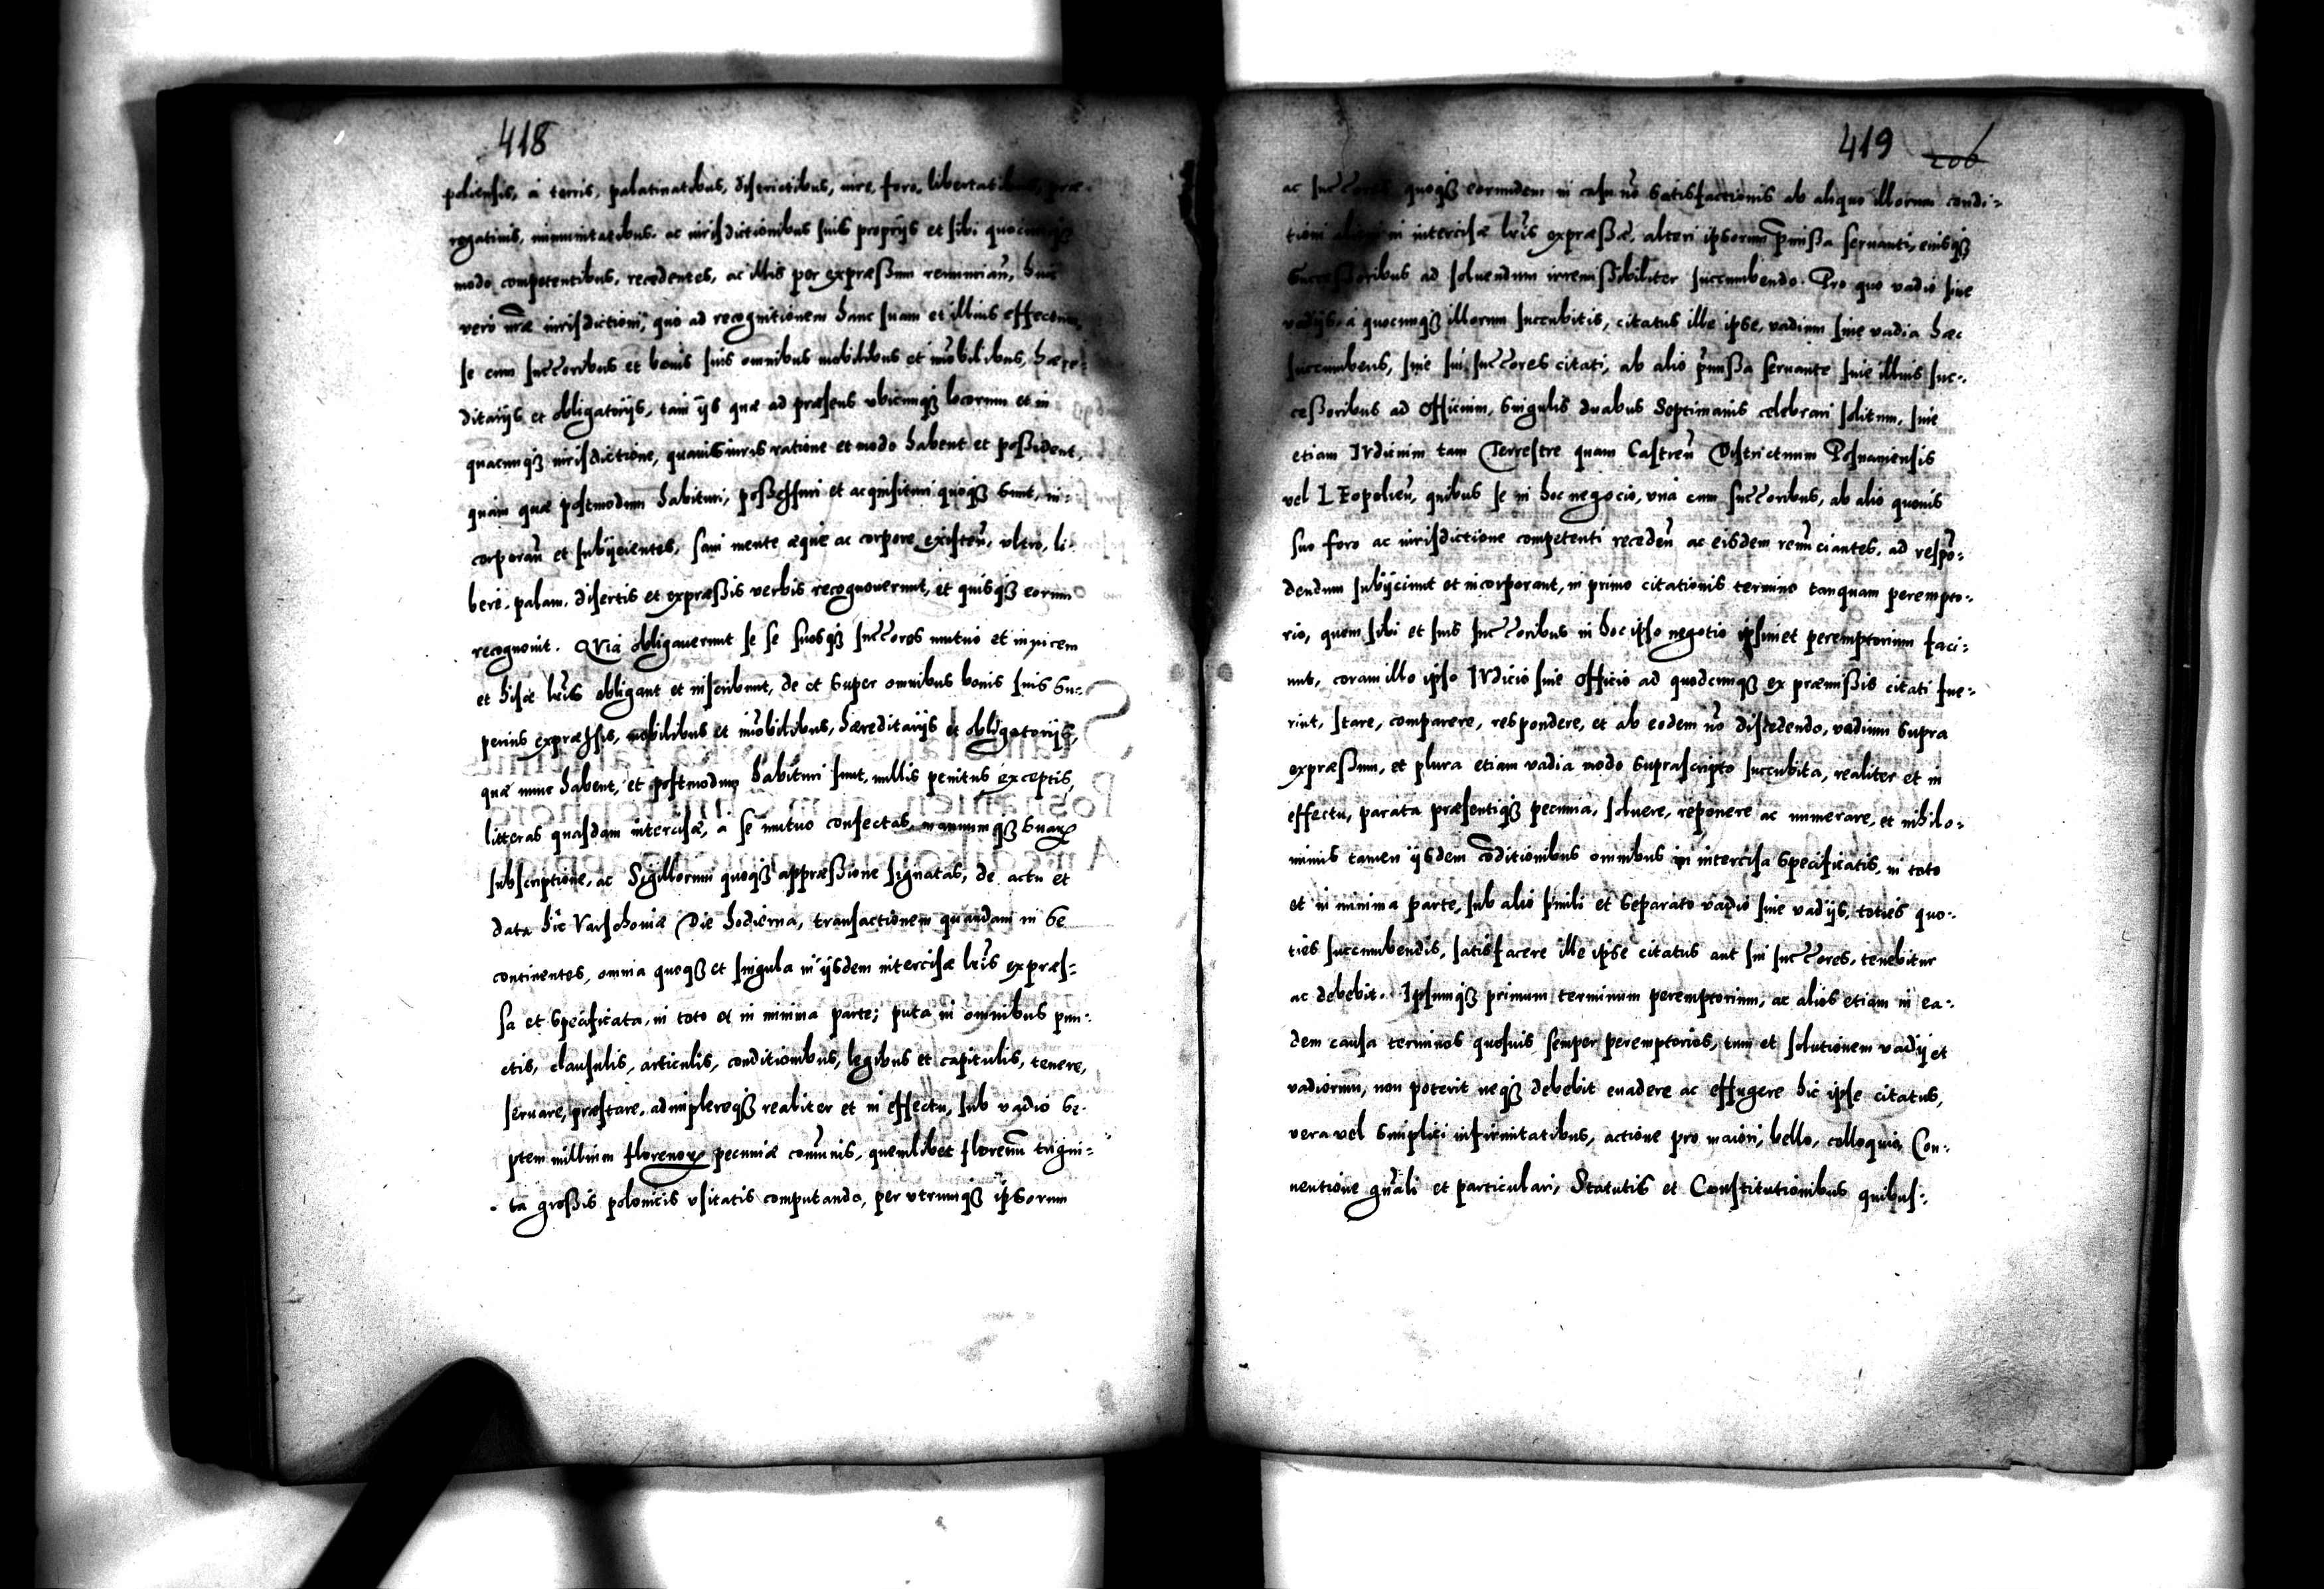 418
poliensis, à terris, palatinatibus, districtibus, iure, foro, libertatibus, præ-
rogatiuis, immunitatibus, ac iurisdictionibus suis proprijs et sibi quocunq3
modo competentibus, recedentes, ac illis per expræßum renuncian̄, huic
vero n̄ræ iurisdictioni, quo ad recognitionem hanc suam et illius effectum,
se cum succ̄oribus et bonis suis omnibus mobilibus et im̄obilibus, hære-
ditarijs et obligatorijs, tam ijs quæ ad præsens vbicunq3 locorum et in
quacunq3 iurisdictione, quauis iuris ratione et modo habent et poßident,
quàm quæ postmodum habituri, poßeßuri et acquisituri quoq3 sunt, in-
corporan̄ et subijcientes, sani mente æque ac corpore existen̄, vltro, li-
berè, palam, disertis et expræßis verbis recognouerunt, et quisq3 eorum
recognouit. QVia obligauerunt se se suosq3 succ̄ores mutuò et inuicem
et hisce l̄ris obligant et inscribunt, de et super omnibus bonis suis su-
perius expræssis, mobilibus et im̄obilibus, hæreditarijs et obligatorijs,
quæ nunc habent, et postmodum habituri sunt, nullis penitus exceptis,
litteras quasdam intercisæ, à se mutuo confectas, manuumq3 suaꝝ
subscriptione, ac Sigillorum quoq3 appræßione signatas, de actu et
data hîc Varschouiæ Die hodierna, transactionem quandam in se
continentes, omnia quoq3 et singula in ijsdem intercisæ l̄ris expræs-
sa et specificata, in toto et in minima parte; puta in omnibus pun-
ctis, clausulis, articulis, conditionibus, legibus et capitulis, tenere,
seruare, præstare, adimplereq3 realiter et in effectu, sub vadio se-
ptem millium florenoꝝ pecuniæ com̄unis, quemlibet florenū trigin-
ta großis polonicis vsitatis computando, per vtrumq3 ipsorum
419 206
ac succ̄ores quoq3 eorundem in casu nō satisfactionis ab aliquo illorum condi-
tioni alicui in intercisæ l̄ris expræßæ, alteri ipsorum p̄mißa seruanti, eiusq3
Succeßoribus ad soluendum irremißibiliter succumbendo. Pro quo vadio siue
vadijs, à quocunq3 illorum succubitis, citatus ille ipse, vadium siue vadia hæc
succumbens, siue sui succ̄ores citati, ab alio p̄mißa seruante siue illius suc-
ceßoribus ad Officium, singulis duabus Septimanis celebrari solitum, siue
etiam IVdicium tam Terrestre quam Castren̄ Districtuum Posnaniensis
vel LEopolien̄, quibus se in hoc negocio, vnà cum succ̄oribus, ab alio quouis
suo foro ac iurisdictione competenti receden̄ ac eisdem renūciantes, ad respō-
dendum subijciunt et incorporant, in primo citationis termino tanquam perempto-
rio, quem sibi et suis succ̄oribus in hoc ipso negotio ipsimet peremptorium faci-
unt, coram illo ipso IVdicio siue officio ad quodcunq3 ex præmißis citati fue-
rint, stare, comparere, respondere, et ab eodem nō discedendo, vadium supra
expræßum, et plura etiam vadia modo suprascripto succubita, realiter et in
effectu, parata præsentiq3 pecunia, soluere, reponere ac numerare, et nihilo-
minus tamen ijsdem cōditionibus omnibus in intercisa specificatis, in toto
et in minima parte, sub alio simili et separato vadio siue vadijs, toties quo-
ties succumbendis, satisfacere ille ipse citatus aut sui succ̄ores, tenebitur
ac debebit. Ipsumq3 primum terminum peremptorium, ac alios etiam in ea-
dem causa terminos quosuis semper peremptorios, tum et solutionem vadij et
vadiorum, non poterit neq3 debebit euadere ac effugere hic ipse citatus,
vera vel simplici infirmitatibus, actione pro maiori, bello, colloquio, Con-
uentione gn̄ali et particulari, Statutis et Constitutionibus quibus-